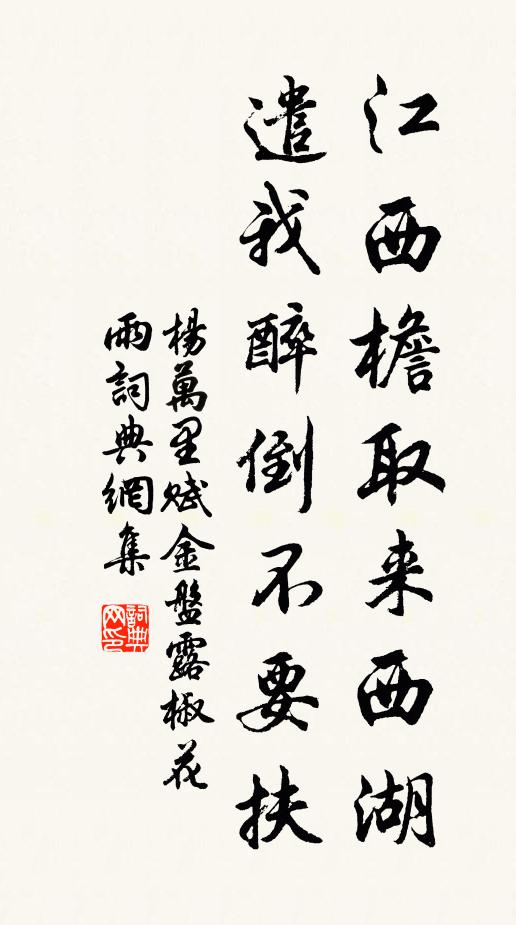 江西檐取来西湖
遣我醉倒不要扶
楊萬里賦金盤露椒花
雨詞典網集
詞典网印